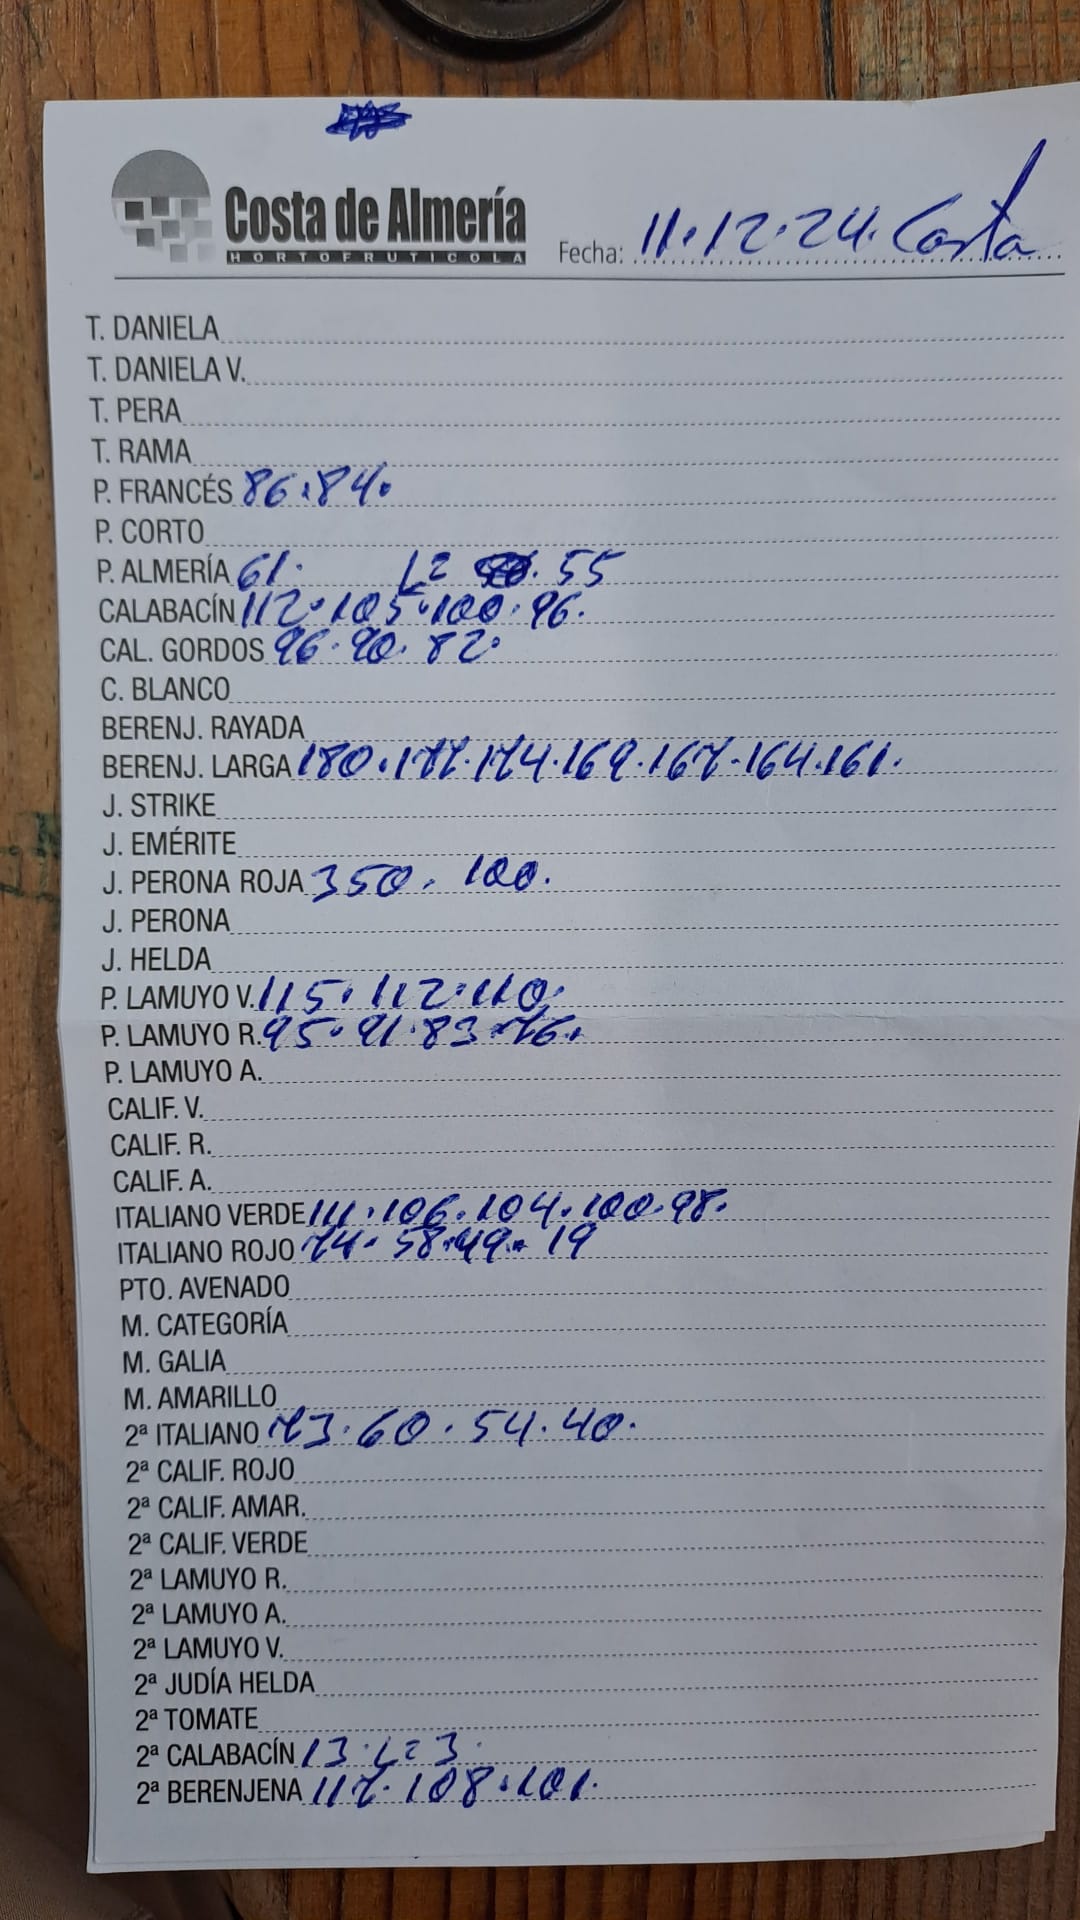 Costa de Almería
HORTOFRUTICOLA
Fecha: 11.12.24. Costa
T. DANIELA
T. DANIELA V.
T. PERA
T. RAMA
P. FRANCÉS 86.84.
P. CORTO
P. ALMERÍA 61. L= 55
CALABACÍN 112.105.100.96.
CAL. GORDOS 96.90.82.
C. BLANCO
BERENJ. RAYADA
BERENJ. LARGA 180.177.174.169.167.164.161.
J. STRIKE
J. EMÉRITE
J. PERONA ROJA 350. 100.
J. PERONA
J. HELDA
P. LAMUYO V. 115.112.110.
P. LAMUYO R. 95.91.83.76.
P. LAMUYO A.
CALIF. V.
CALIF. R.
CALIF. A.
ITALIANO VERDE 111.106.104.100.98.
ITALIANO ROJO 74.58.49.19
PTO. AVENADO
M. CATEGORÍA
M. GALIA
M. AMARILLO
2ª ITALIANO 73.60.54.40.
2ª CALIF. ROJO
2ª CALIF. AMAR.
2ª CALIF. VERDE
2ª LAMUYO R.
2ª LAMUYO A.
2ª LAMUYO V.
2ª JUDÍA HELDA
2ª TOMATE
2ª CALABACÍN 13.L=3.
2ª BERENJENA 117.108.101.